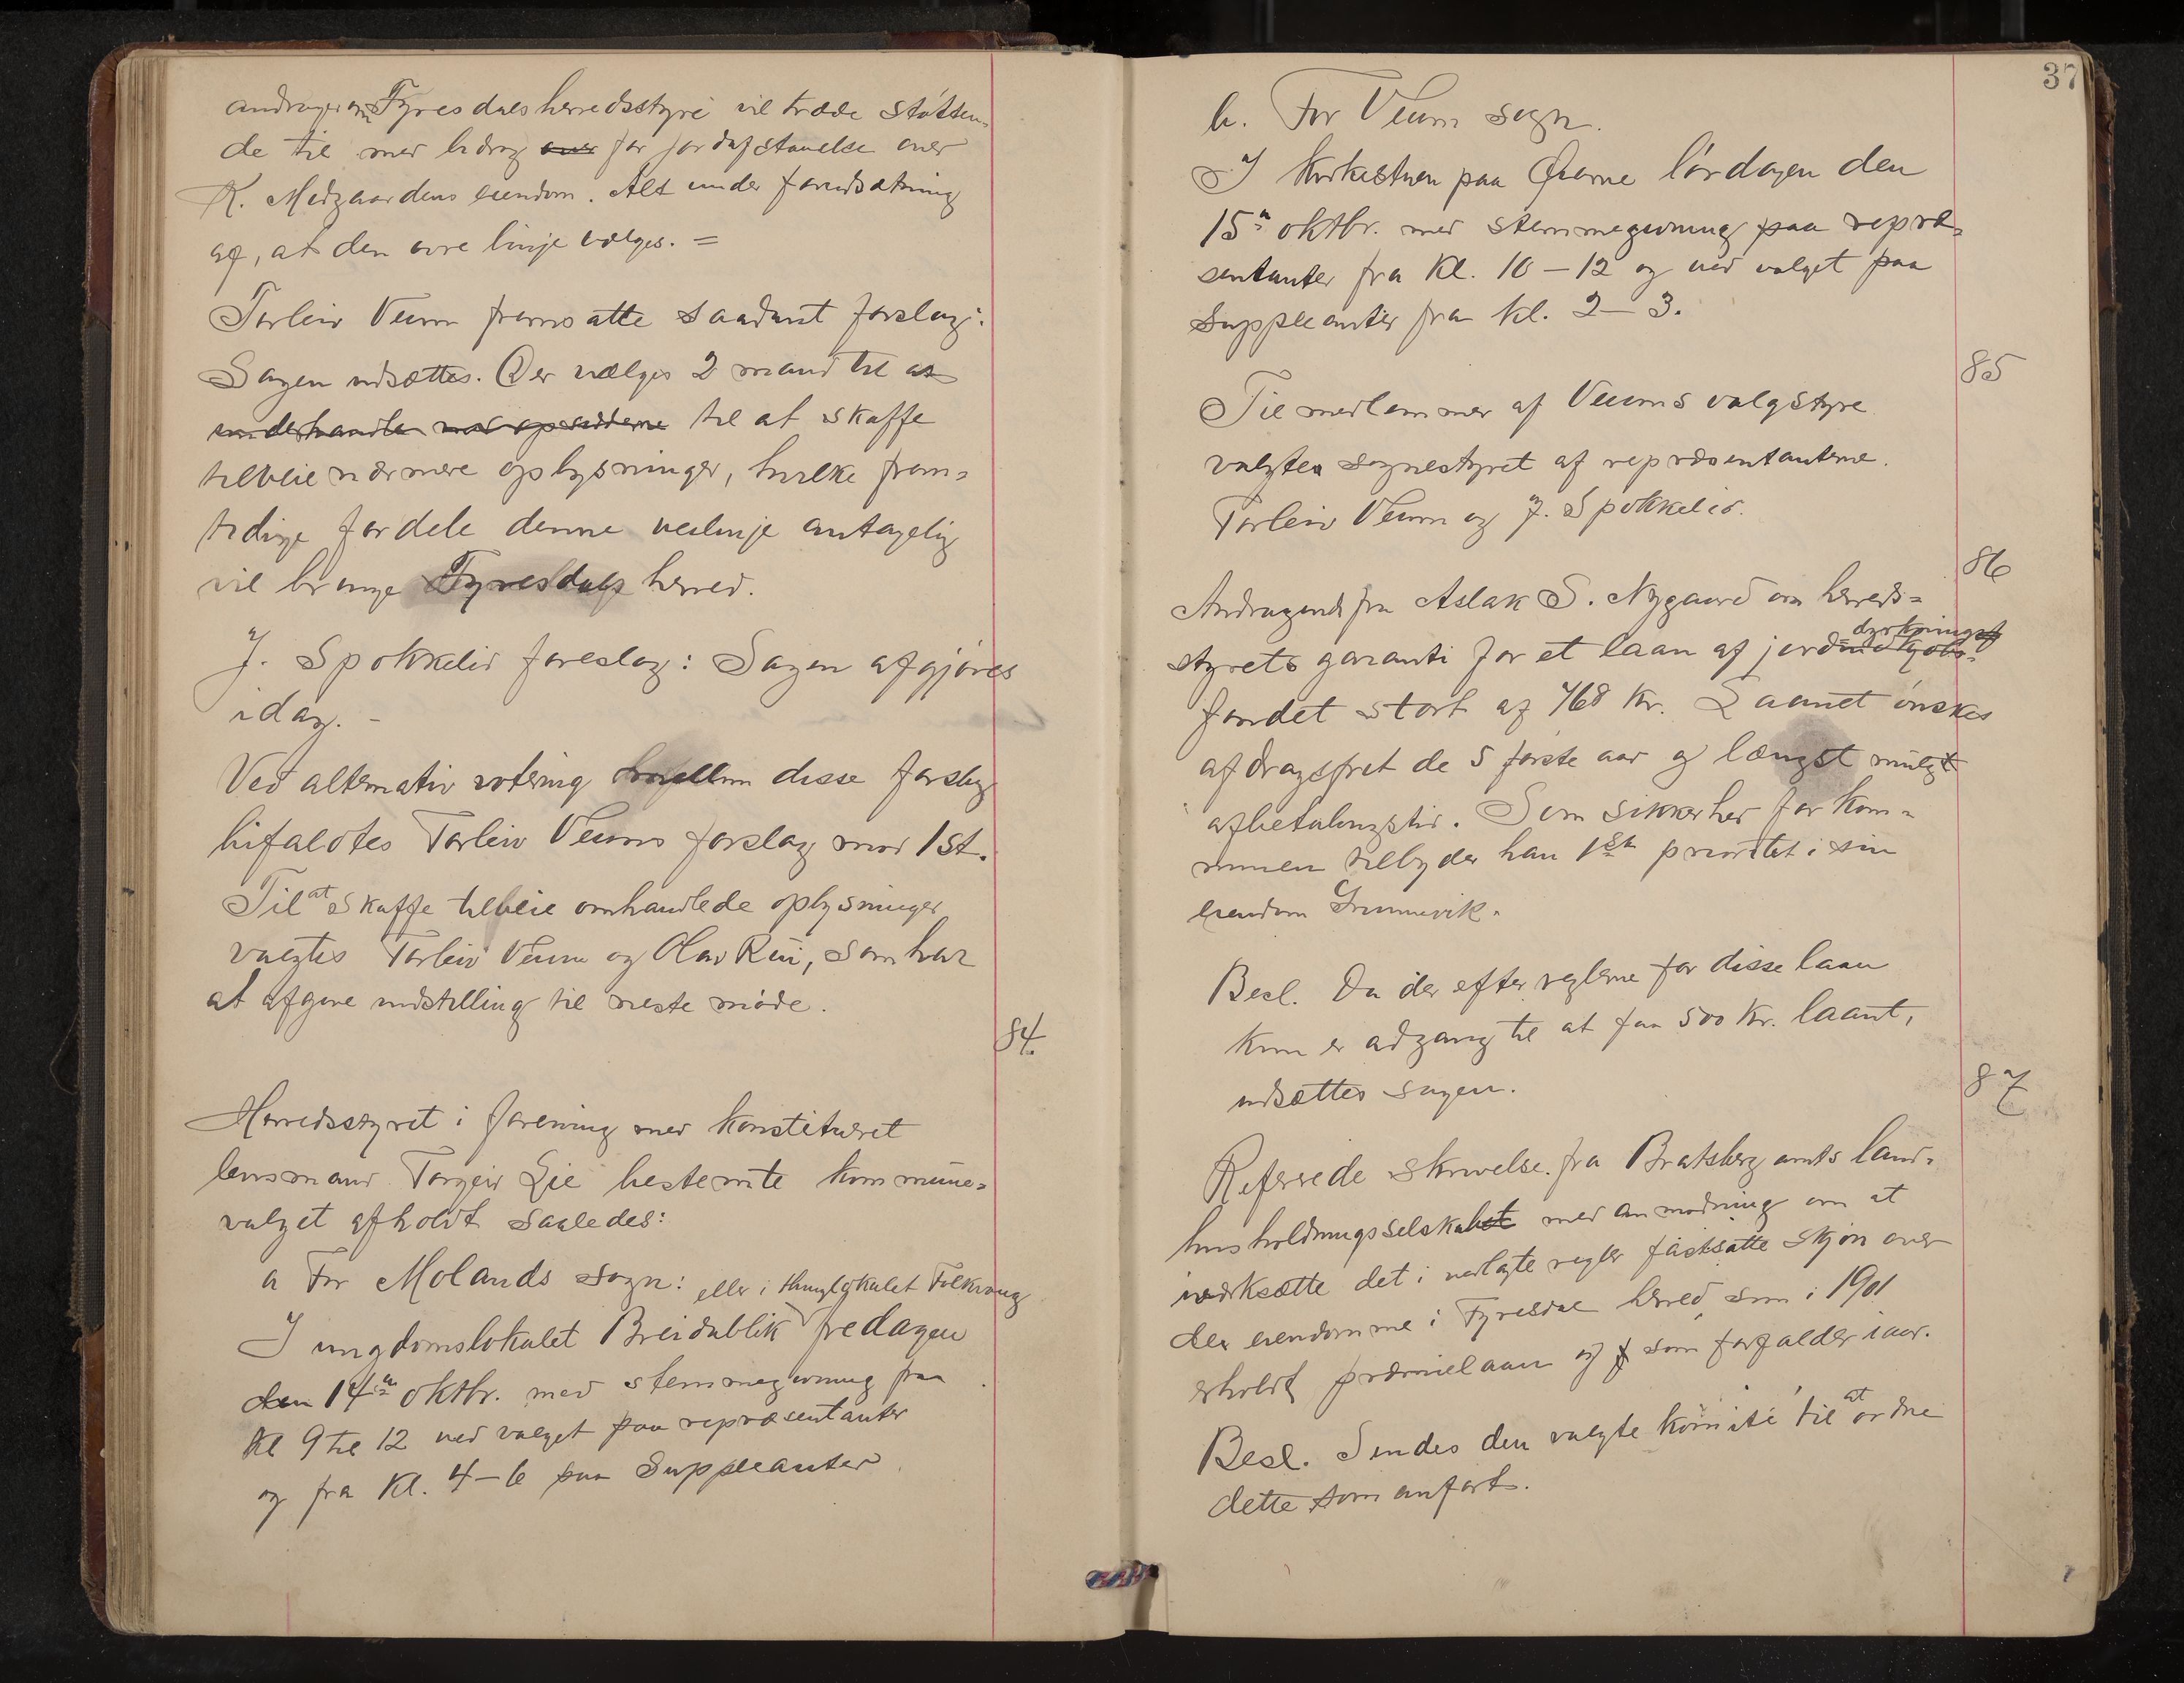 andrager om Tyresdals herredsstyre vil træde støtten-
de til med bidrag over for jordafstaaelse over
K. Midgaardens eiendom. Alt under forudsætning
af, at den øvre linje vælges. =
Torleiv Veum fremsatte saadant forslag:
Sagen udsættes. Der vælges 2 mand til at
underhandle med opsidderne til at skaffe
tilveie nærmere oplysninger, hvilke frem-
tidige fordele denne veilinje antagelig
vil bringe Tyresdals herred.
J. Spokkelid foreslog: Sagen afgjøres
idag. -
Ved alternativ votering mellem disse forslag
bifaldtes Torleiv Veums forslag mod 1 st.
Til at skaffe tilveie omhandlede oplysninger
valgtes Torleiv Veum og Olav Rui, som har
at afgive indstilling til neste møde.
84.
Herredsstyret i forening med konstitueret
lensmand Torgeir Lie bestemte kommune-
valget afholdt saaledes:
a For Molands sogn: eller i thinglokalet Folkvang
I ungdomslokalet Breidablik fredagen
den 14de oktbr. med stemmegivning paa
Kl 9 til 12 ved valget paa repræsentanter
og fra Kl. 4-6 paa Suppleanter
37
b. For Veum sogn.
I kirkestuen paa Øierne lørdagen den
15de oktbr. med stemmegivning paa repræ-
sentanter fra Kl. 10-12 og ved valget paa
Suppleanter fra kl. 2-3.
85
Til medlemmer af Veums valgstyre
valgtes sognestyret af repræsentanterne.
Torleiv Veum og J. Spokkelid.
86
Andragende fra Aslak S. Nygaard om herreds-
dyrknings
styrets garanti for et laan af jordindkjøbs-
fondet stort af 768 kr. Laanet ønskes
afdragsfrit de 5 første aar og længst muligt
afbetalingstid. Som sikkerhed for kom-
munen tilbyder han 1ste prioritet i sin
eiendom Grimmevik.
Besl. Da der efter reglerne for disse laan
kun er adgang til at faa 500 kr. laant,
udsættes sagen.
87
Refererede skrivelse fra Bratsberg amts land-
husholdningsselskabet med anmodning om at
iværksætte det i vedlagte regler fastsatte skjøn over
de eiendomme i Tyresdal herred som i 1901
erholdt præmielaan og som forfalder iaar.
Besl. Sendes den valgte komité til at ordne
dette som anført.